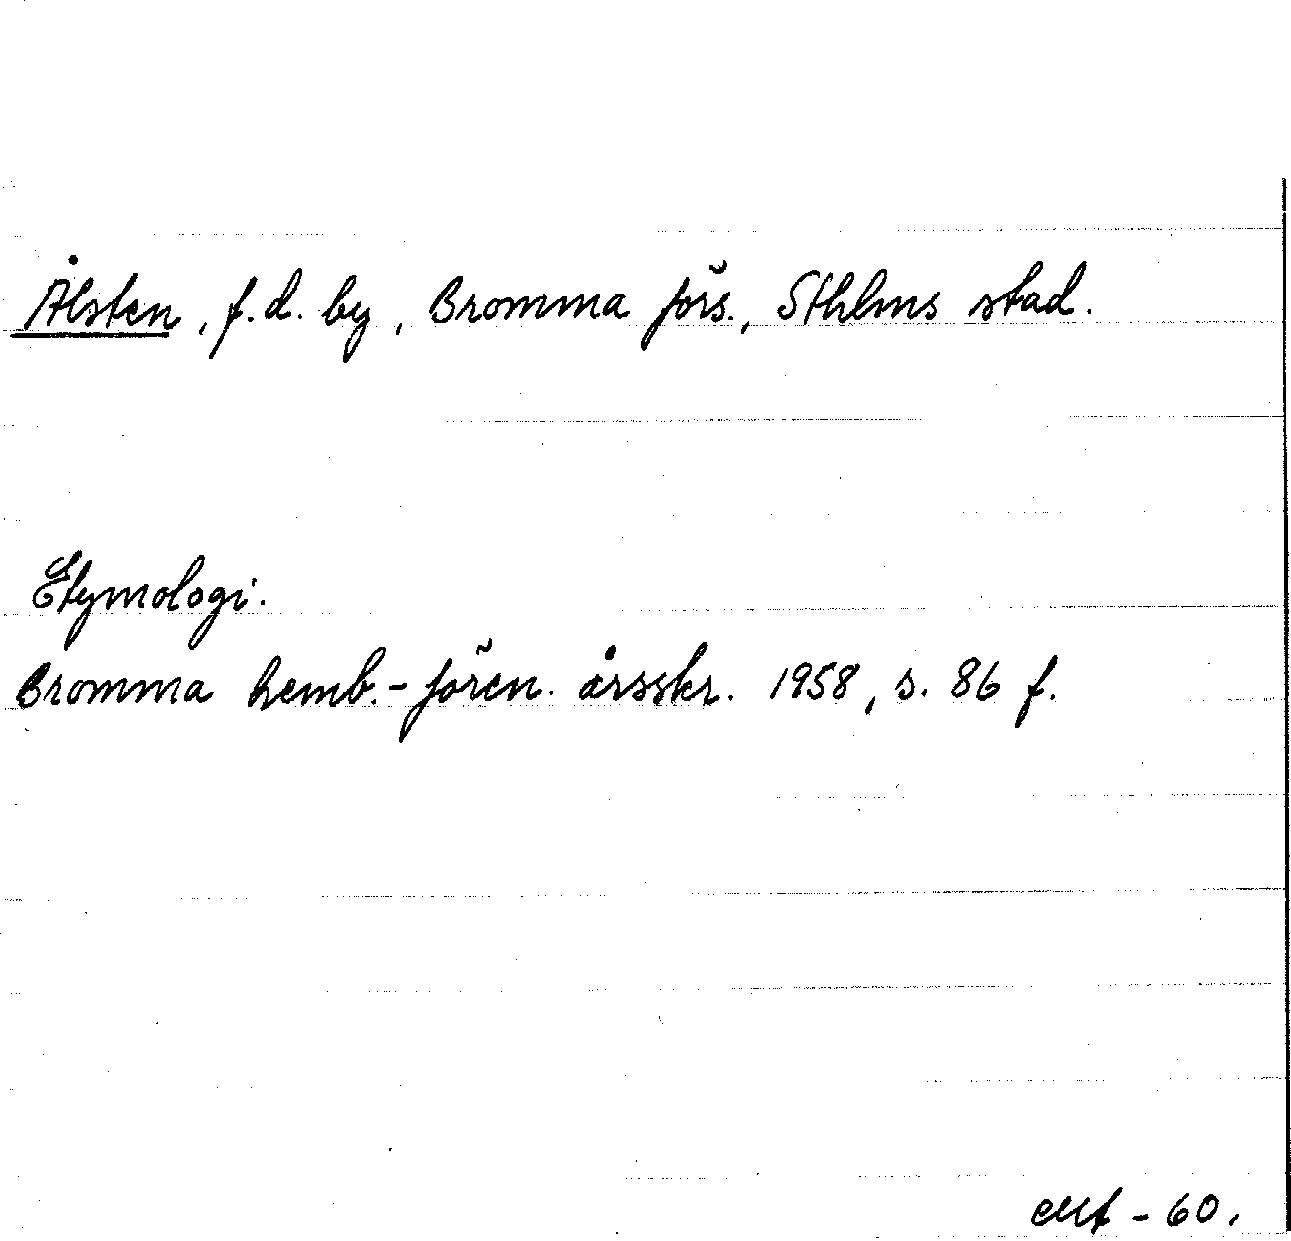 Ålsten, f.d. by, Bromma förs., Sthlms stad.
Etymologi.
Bromma hemb.-fören. årsskr. 1958, s. 86 f.
- 60.